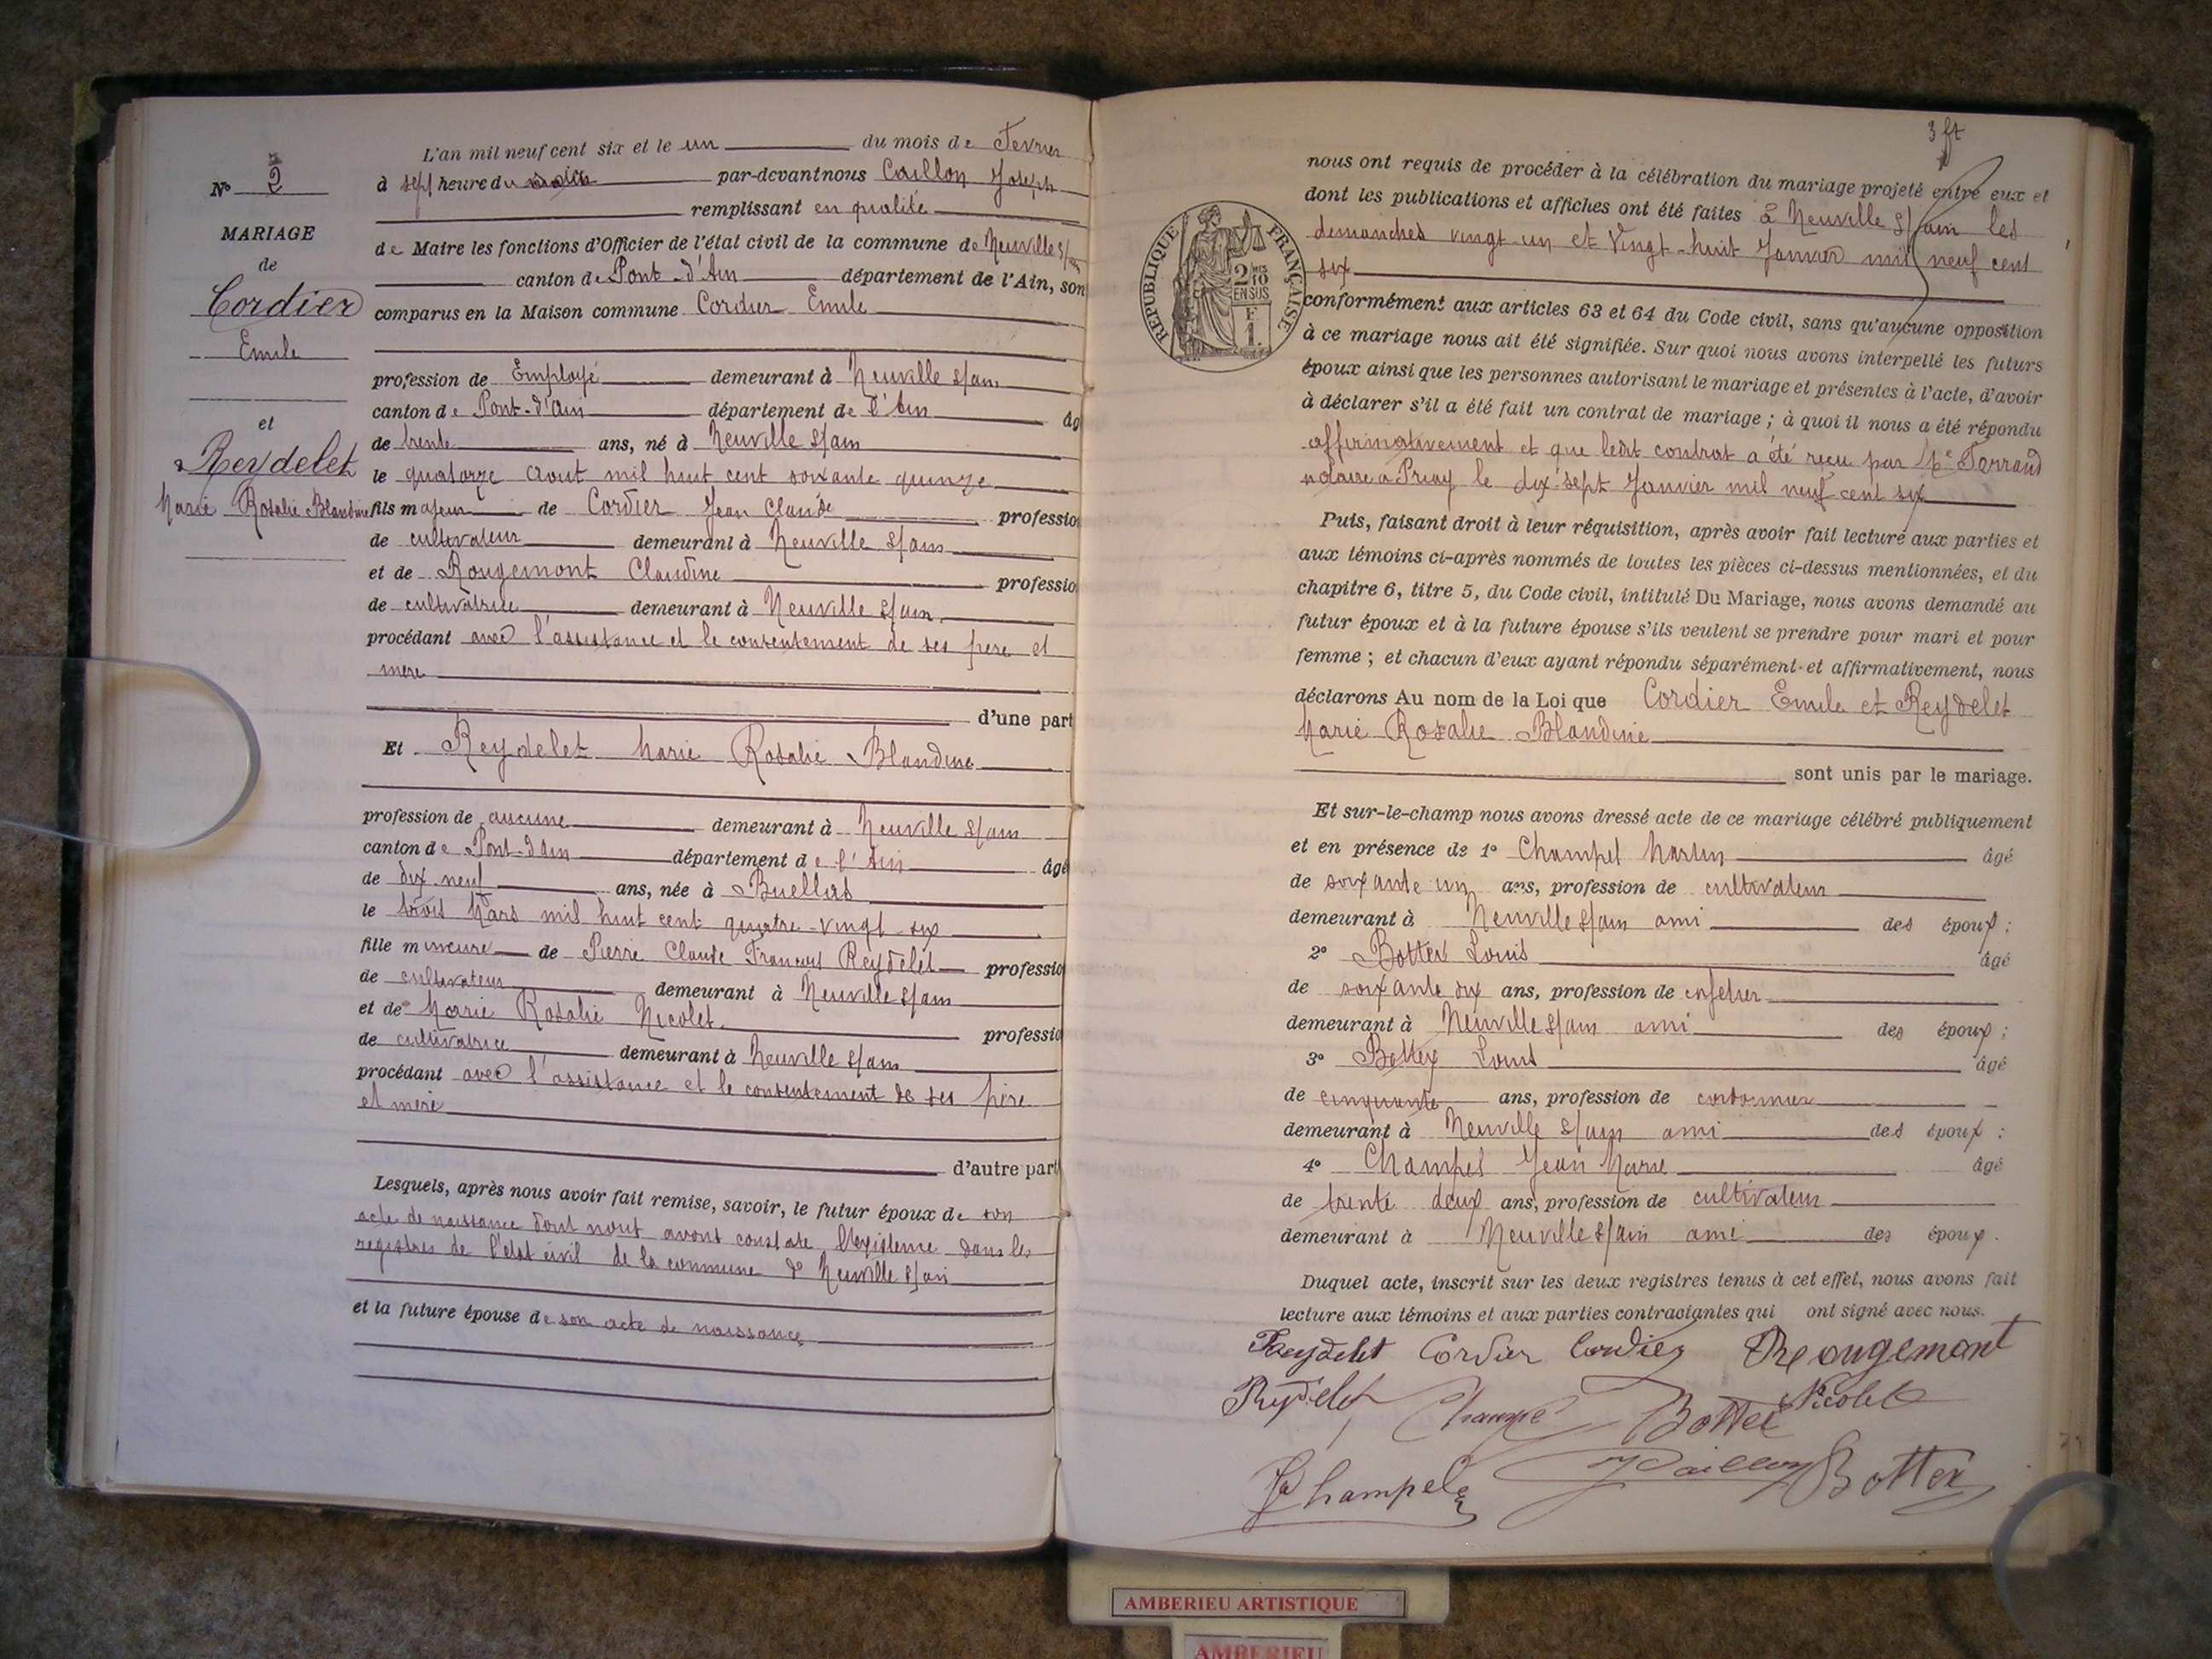 N° 2
MARIAGE
de
Cordier
Emile
et
Reydelet
Marie Rosalie Blandine
L'an mil neuf cent six et le un du mois de Fevrier
à sept heure du par-devant nous Caillon Joseph
remplissant en qualité
de Maire les fonctions d'Officier de l'état civil de la commune de Neuville s/ain
canton de Pont-d'Ain département de l'Ain, son
comparus en la Maison commune Cordier Emile
profession de Employé demeurant à Neuville s/ain
canton de Pont-d'Ain département de l'Ain âg
de trente ans, né à Neuville s/ain
le quatorze Aout mil huit cent soixante quinze
fils majeur de Cordier Jean Claude professio
de cultivateur demeurant à Neuville s/ain
et de Rougemont Claudine professio
de cultivatrice demeurant à Neuville s/ain
procédant avec l'assistance et le consentement de ses père et
mere
d'une part
Et Reydelet Marie Rosalie Blandine
profession de aucune demeurant à Neuville s/ain
canton de Pont-d'Ain département de l'Ain âgé
de dix-neuf ans, née à Buellas
le trois Mars mil huit cent quatre-vingt-six
fille mineure de Pierre Claude François Reydelet professio
de cultivateur demeurant à Neuville s/ain
et de Marie Rosalie Nicolet professio
de cultivatrice demeurant à Neuville s/ain
procédant avec l'assistance et le consentement de ses père
et mere
d'autre part
Lesquels, après nous avoir fait remise, savoir, le futur époux de son
acte de naissance dont nout avons constate l'existence dans les
registres de l'etat civil de la commune de Neuville s/ain
et la future épouse de son acte de naissance
3 ft
RÉPUBLIQUE FRANÇAISE
2/10 EN SUS
F 1.
nous ont requis de procéder à la célébration du mariage projeté entre eux et
dont les publications et affiches ont été faites à Neuville s/ain les
dimanches vingt-un et Vingt-huit Janvier mil neuf cent
six
conformément aux articles 63 et 64 du Code civil, sans qu'aucune opposition
à ce mariage nous ait été signifiée. Sur quoi nous avons interpellé les futurs
époux ainsi que les personnes autorisant le mariage et présentes à l'acte, d'avoir
à déclarer s'il a été fait un contrat de mariage ; à quoi il nous a été répondu
affirmativement et que ledit contrat a été reçu par Me Ferrand
notaire à Priay le dix-sept Janvier mil neuf cent six
Puis, faisant droit à leur réquisition, après avoir fait lecture aux parties et
aux témoins ci-après nommés de toutes les pièces ci-dessus mentionnées, et du
chapitre 6, titre 5, du Code civil, intitulé Du Mariage, nous avons demandé au
futur époux et à la future épouse s'ils veulent se prendre pour mari et pour
femme ; et chacun d'eux ayant répondu séparément et affirmativement, nous
déclarons Au nom de la Loi que Cordier Emile et Reydelet
Marie Rosalie Blandine
sont unis par le mariage.
Et sur-le-champ nous avons dressé acte de ce mariage célébré publiquement
et en présence de 1° Champel Martin âgé
de soixante un ans, profession de cultivateur
demeurant à Neuville s/ain ami des époux ;
2° Bottex Louis âgé
de soixante six ans, profession de
demeurant à Neuville s/ain ami des époux ;
3° Bottex Louis âgé
de cinquante ans, profession de cordonnier
demeurant à Neuville s/ain ami des époux :
4° Champel Jean Marie âgé
de trente deux ans, profession de cultivateur
demeurant à Neuville s/ain ami des époux.
Duquel acte, inscrit sur les deux registres tenus à cet effet, nous avons fait
lecture aux témoins et aux parties contractantes qui ont signé avec nous.
Reydelet Cordier Cordier Rougemont
Reydelet Champel Bottex Nicolet
J Champel Caillon Bottex
AMBERIEU ARTISTIQUE
AMBERIEU